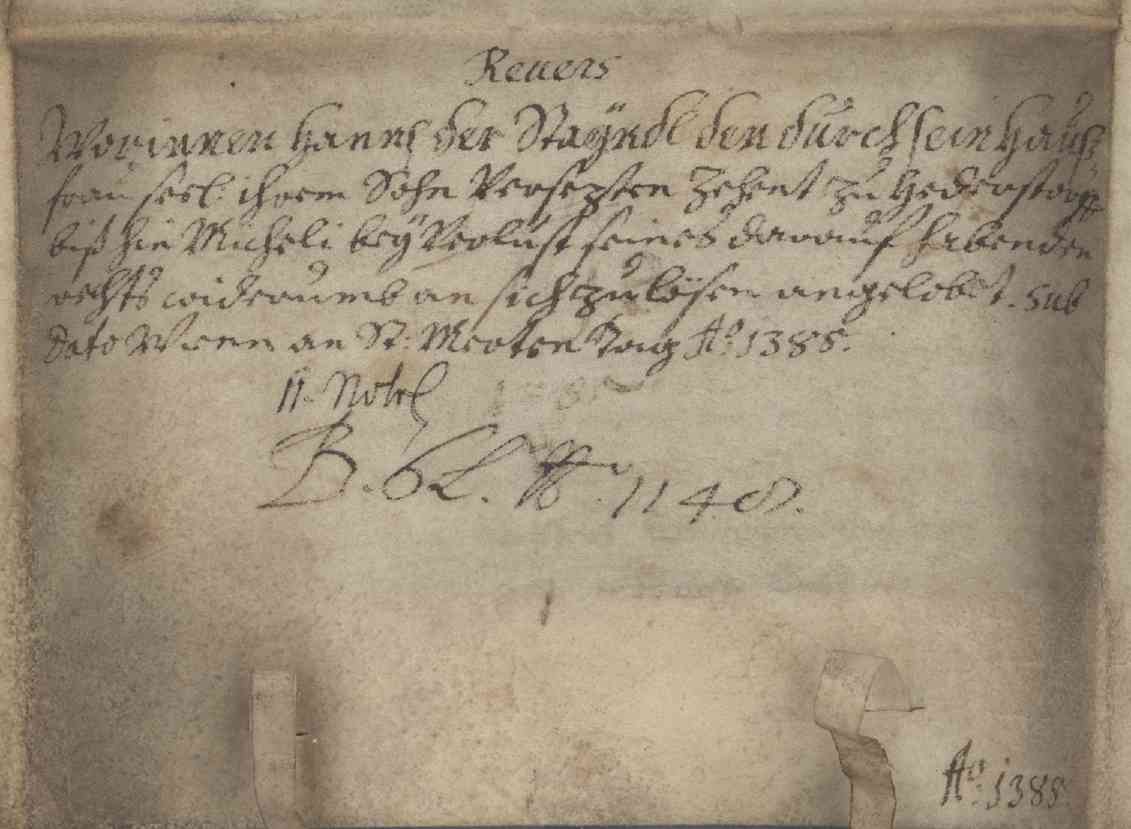 Reuers
Worinnen Hanns der Stayndl den durch sein Hauß
frau seel: ihrem Sohn Versezten Zehent zu Hederstorff
biß hin Micheli bey Verlust seines darauf habenden
rechts widerumb an sich zu lösen angelobet. Sub
Dato Wienn an St: Merten Tag Ao: 1385.
11. Notel
B. 62. 1148.
Ao: 1385